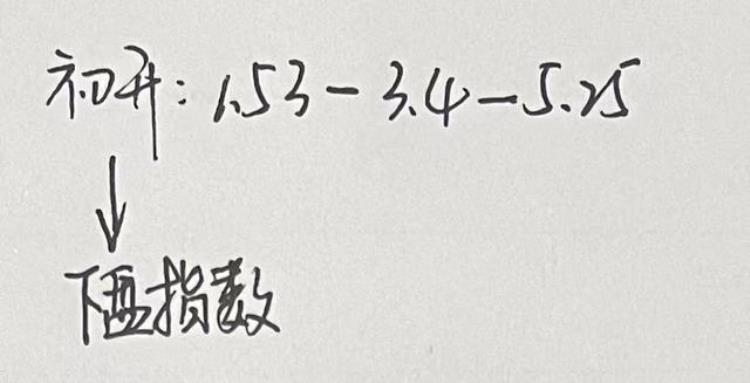 初开:1.53-3.4-5.25
↓
下盘指数